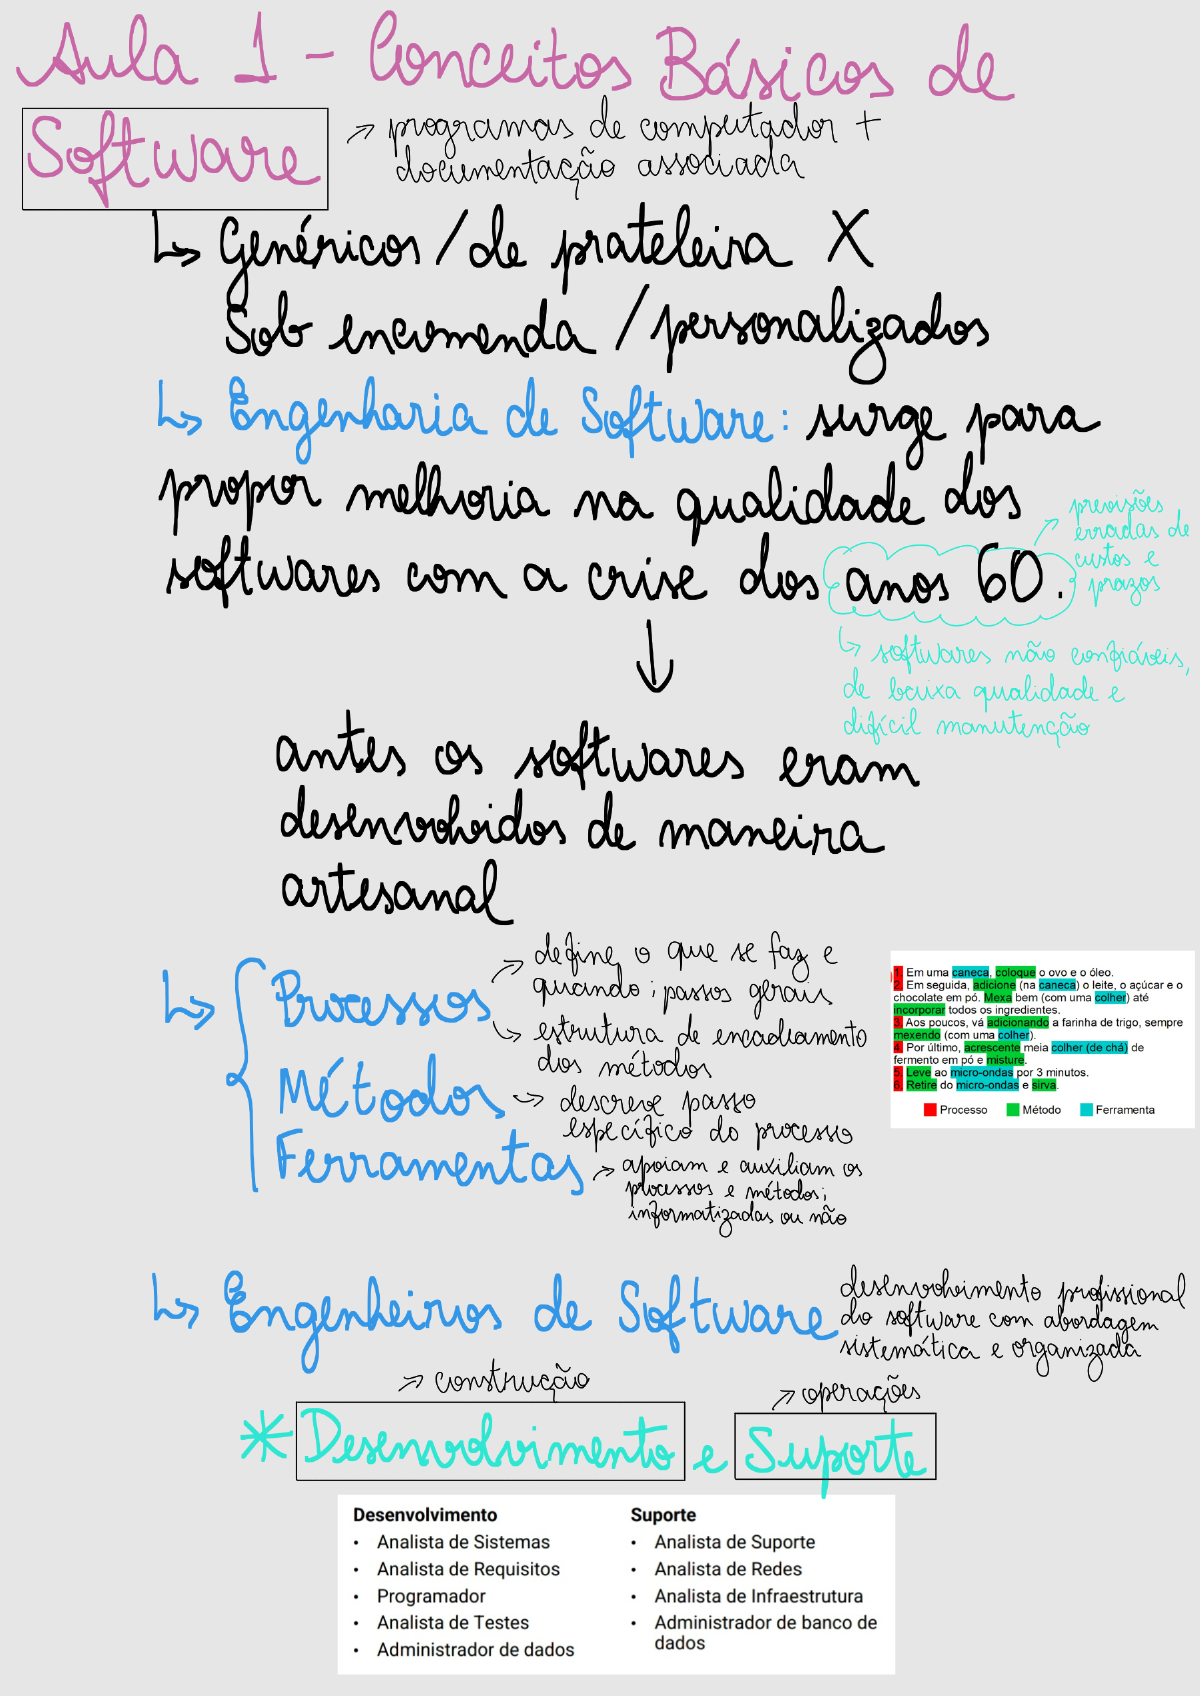 Aula 1 - Conceitos Básicos de
Software
→ programas de computador +
documentação associada
↳ Genéricos / de prateleira X
Sob encomenda / personalizados
↳ Engenharia de Software: surge para
propor melhoria na qualidade dos
softwares com a crise dos anos 60.
→ previsões
erradas de
custos e
prazos
↳ softwares não confiáveis,
de baixa qualidade e
difícil manutenção
↓
antes os softwares eram
desenvolvidos de maneira
artesanal
↳ { Processos
→ define o que se faz e
quando; passos gerais
↳ estrutura de encadeamento
dos métodos
Métodos
↳ descreve passo
específico do processo
Ferramentas
→ apoiam e auxiliam os
processos e métodos;
informatizadas ou não
1. Em uma caneca, coloque o ovo e o óleo.
2. Em seguida, adicione (na caneca) o leite, o açúcar e o
chocolate em pó. Mexa bem (com uma colher) até
incorporar todos os ingredientes.
3. Aos poucos, vá adicionando a farinha de trigo, sempre
mexendo (com uma colher).
4. Por último, acrescente meia colher (de chá) de
fermento em pó e misture.
5. Leve ao micro-ondas por 3 minutos.
6. Retire do micro-ondas e sirva.
Processo Método Ferramenta
↳ Engenheiros de Software
desenvolvimento profissional
do software com abordagem
sistemática e organizada
→ construção
→ operações
* Desenvolvimento e Suporte
Desenvolvimento
• Analista de Sistemas
• Analista de Requisitos
• Programador
• Analista de Testes
• Administrador de dados
Suporte
• Analista de Suporte
• Analista de Redes
• Analista de Infraestrutura
• Administrador de banco de
dados